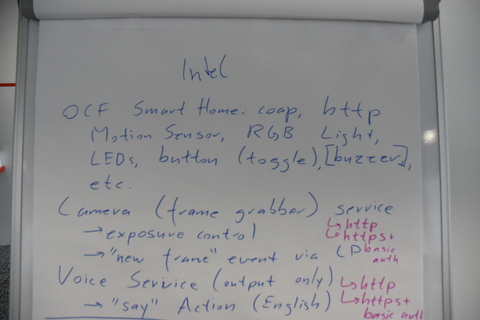 Intel
OCF Smart Home: coap, http
Motion Sensor, RGB Light,
LEDs, button (toggle), [buzzer],
etc.
Camera (frame grabber) service
↳http
→exposure control
↳https+
→"new frame" event via LP
basic
auth
Voice Service (output only)
↳http
→"say" Action (English)
↳https+
basic auth